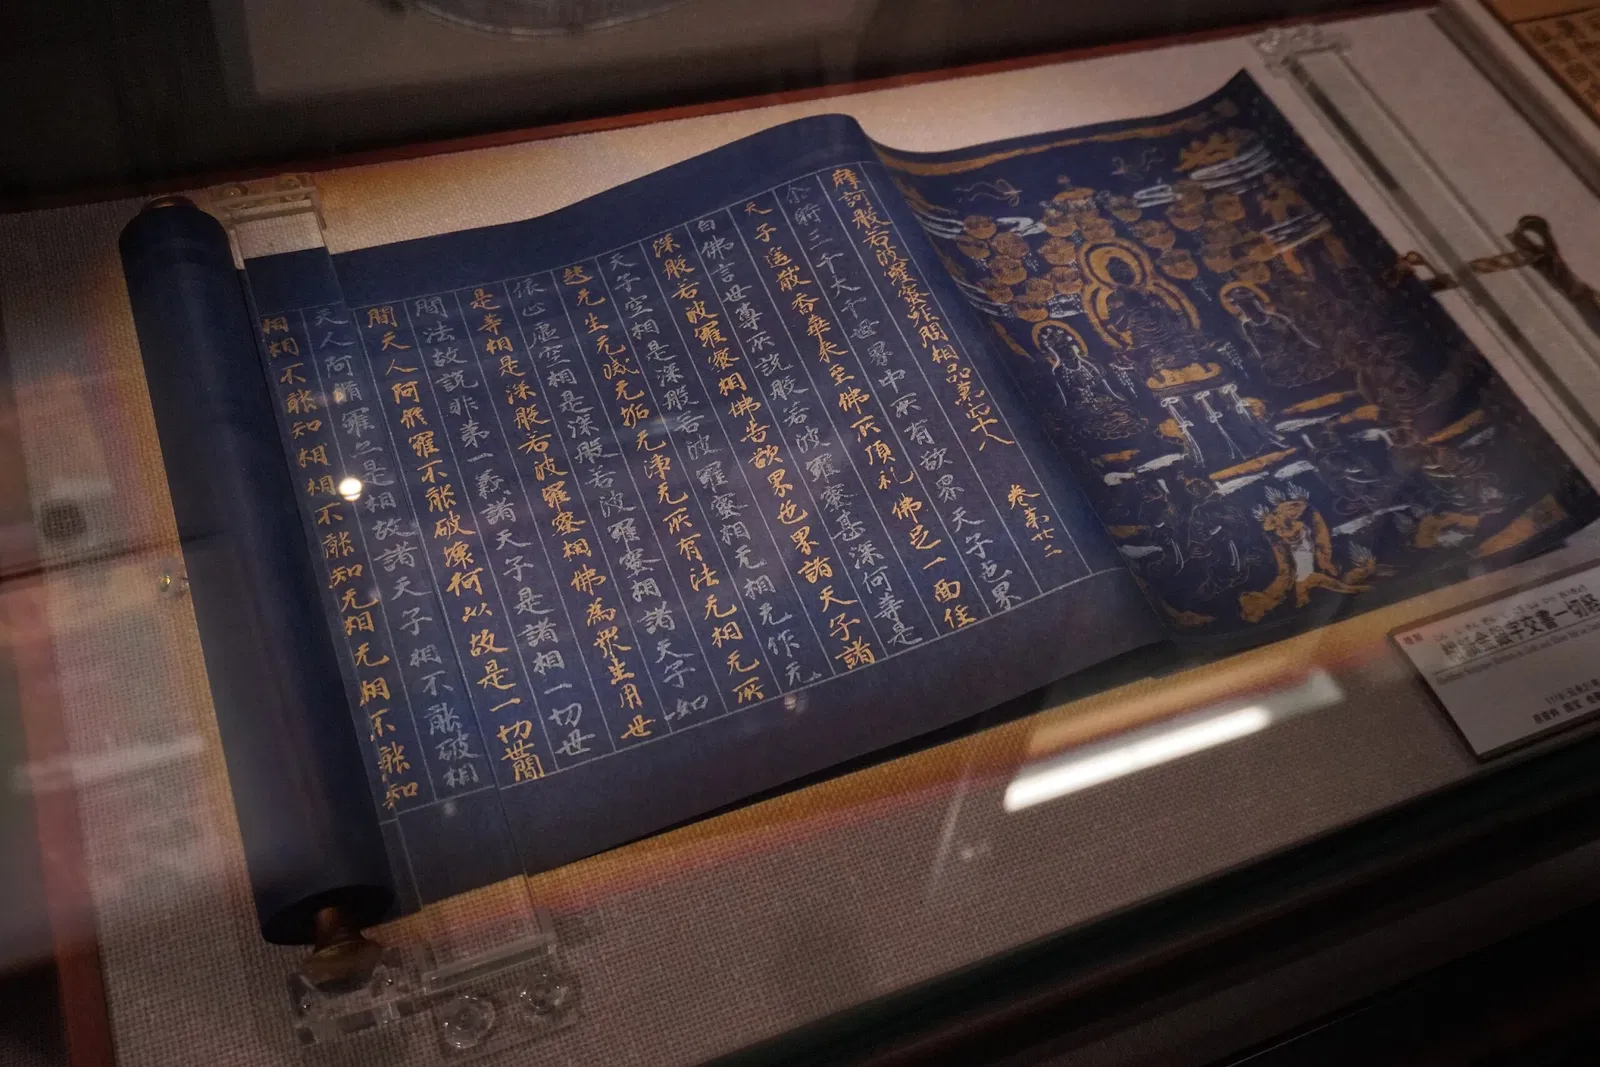 摩訶般若波羅蜜經問相品第卌九 卷第廿二
尒時三千大千世界中所有欲界天子色界
天子遥散香華来至佛所頂礼佛足一面住
白佛言世尊所説般若波羅蜜甚深何等是
深般若波羅蜜相佛告欲界色界諸天子諸
天子空相是深般若波羅蜜相无相无作无
起无生无滅无垢无浄无所有法无相无所
依止虚空相是深般若波羅蜜相諸天子如
是等相是深般若波羅蜜相佛為衆生用世
間法故説非第一義諸天子是諸相一切世
間天人阿修羅不能破壊何以故是一切世間
天人阿脩羅亦是相故諸天子相不能破相
相相不能知相相不能知无相无相不能知
紺紙金銀字交書一切経